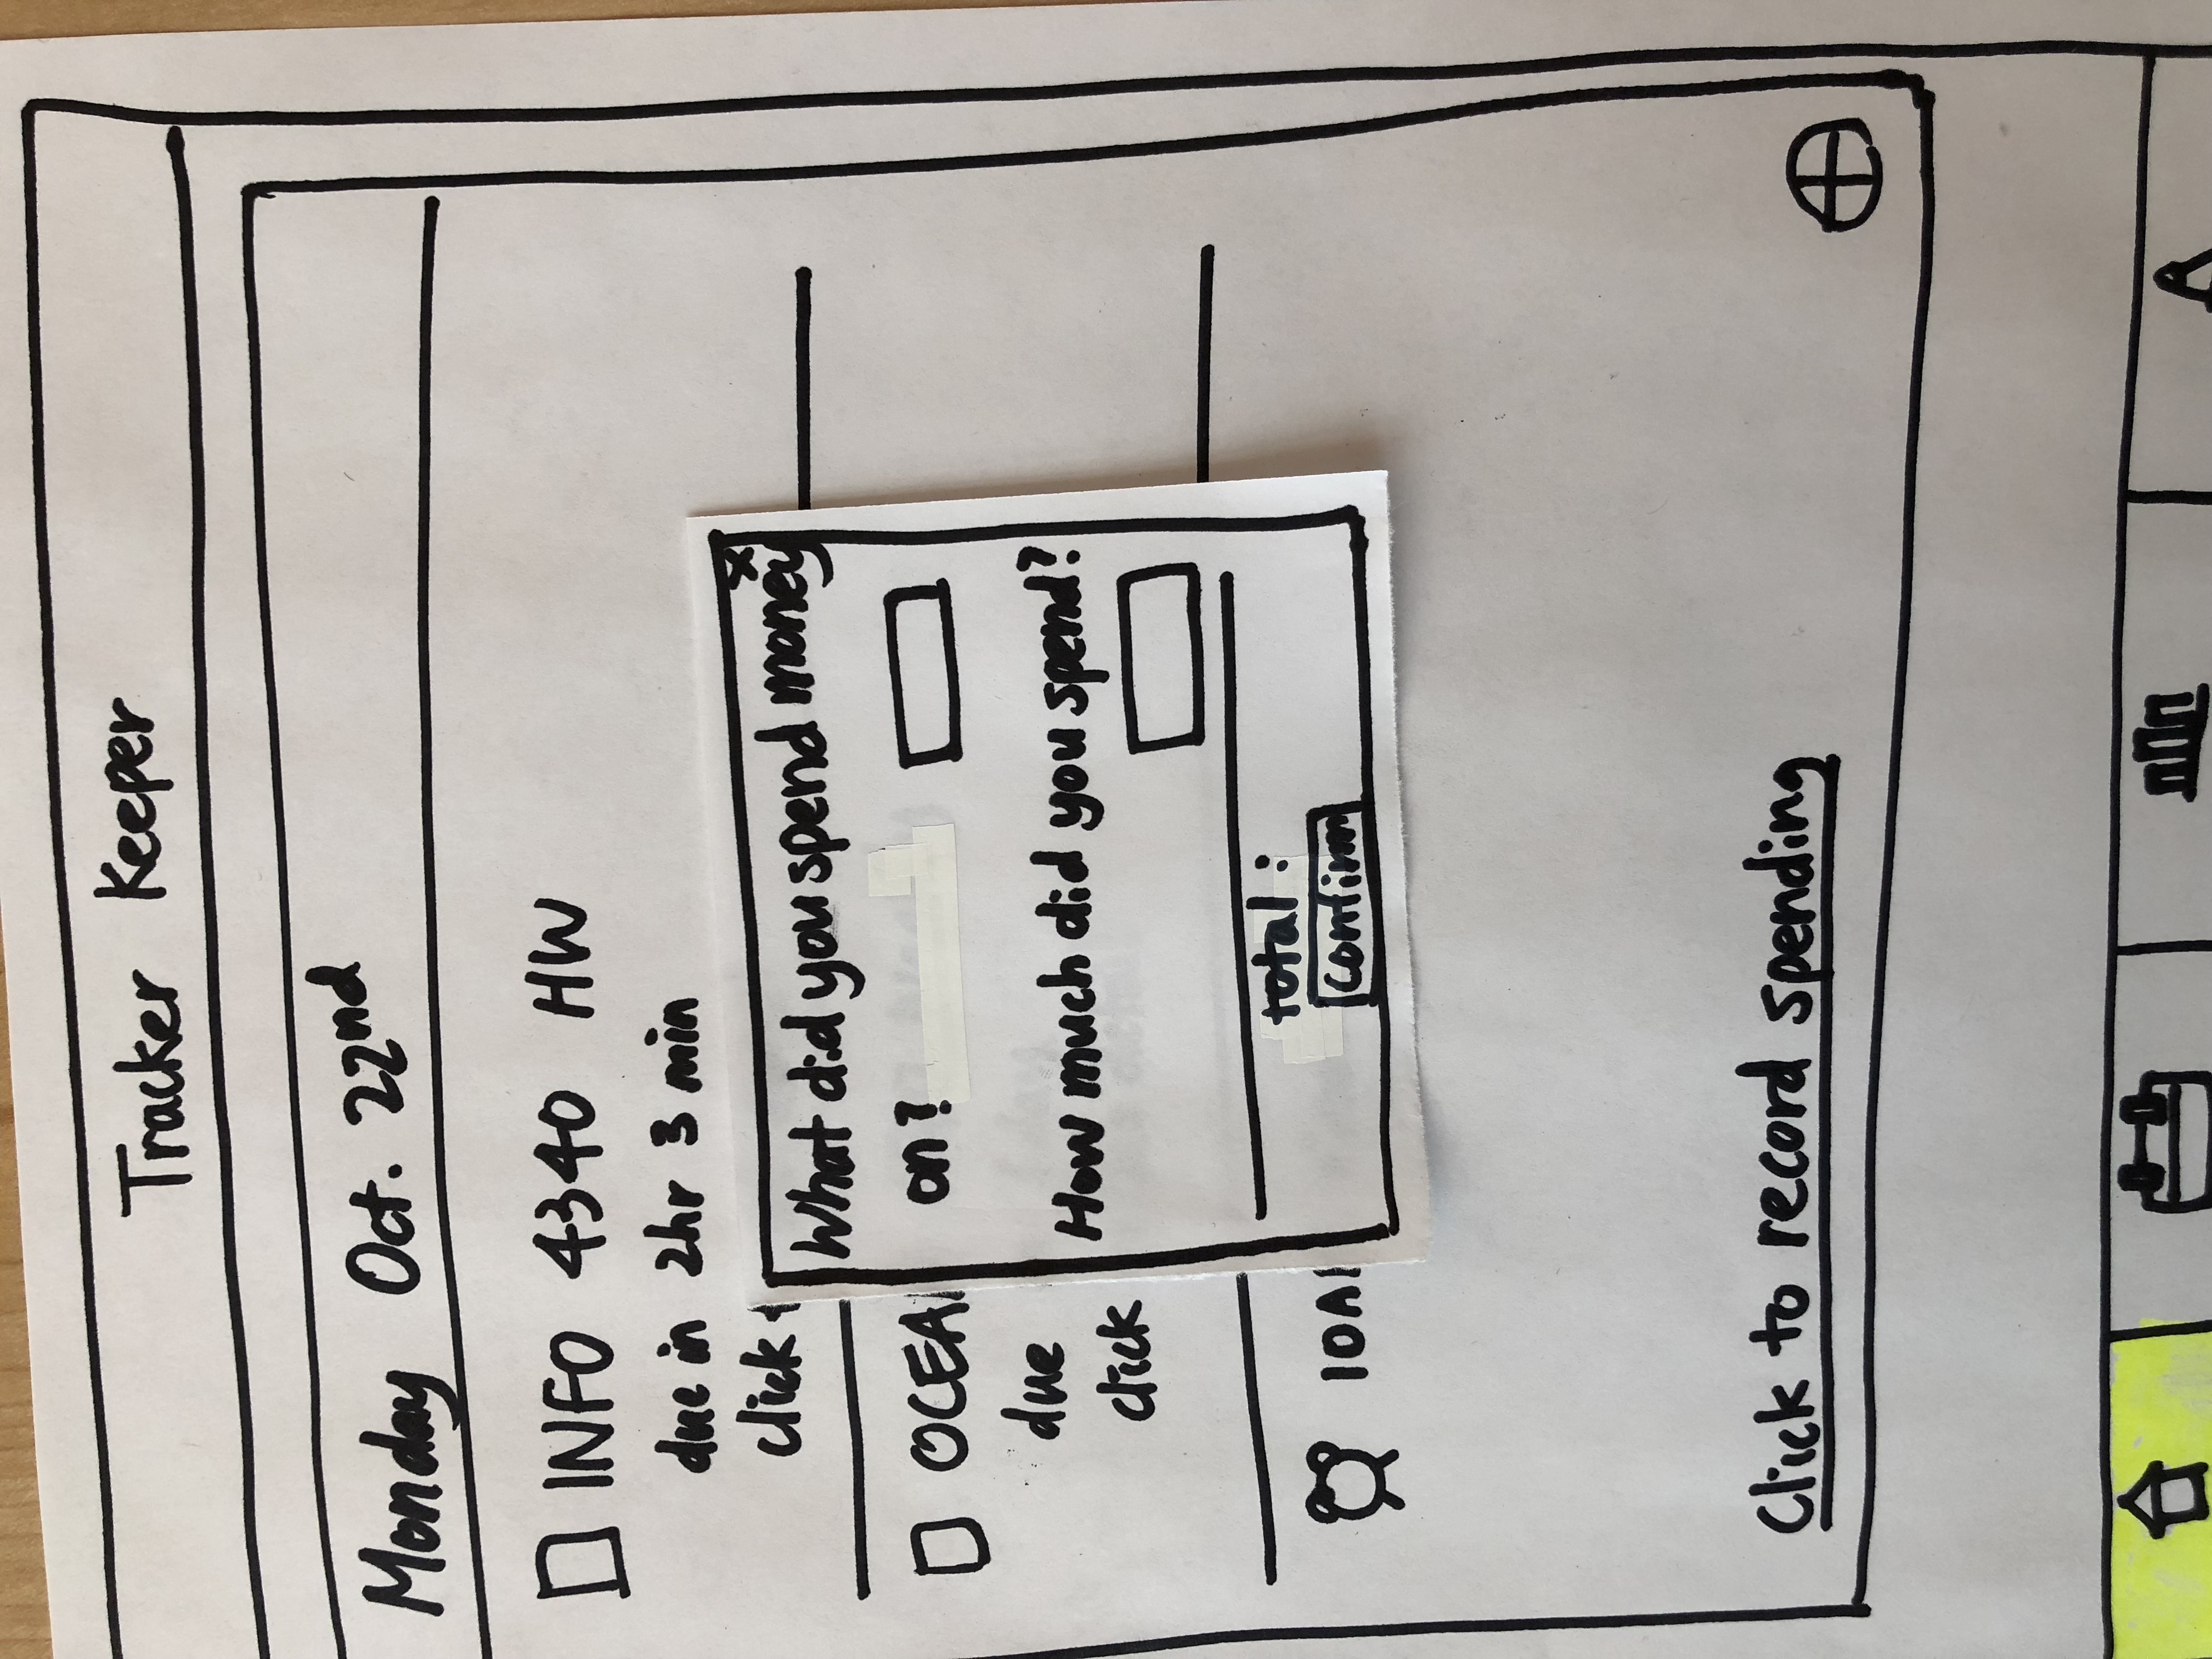 Tracker Keeper
Monday Oct. 22nd
INFO 4340 HW
due in 2hr 3 min
click
What did you spend money
on?
How much did you spend?
total:
confirm
due
click
Click to record spending